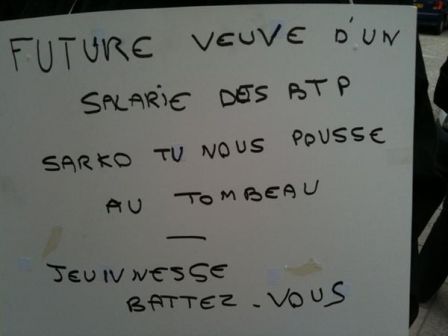 FUTURE VEUVE D'UN
SALARIE DES BTP
SARKO TU NOUS POUSSE
AU TOMBEAU
—
JEUIVNESSE
BATTEZ-VOUS